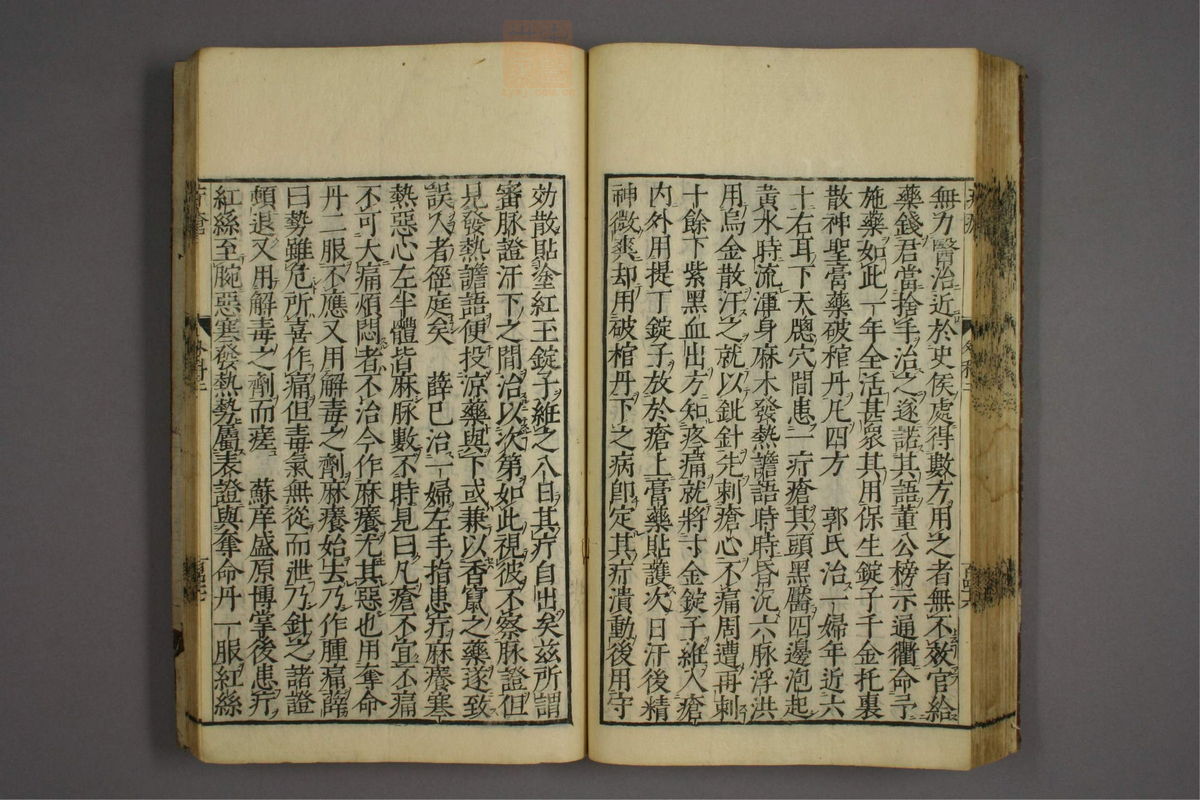 無力醫治近於史侯處得數方用之者無不效官給
藥錢君當捨手治之遂諾其語董公榜示通衢命予
施藥如此一年全活甚衆其用保生錠子千金托裏
散神聖膏藥破棺丹凡四方　郭氏治一婦年近六
十右耳下天牕穴間患一疔瘡其頭黑靨四邊泡起
黃水時流渾身麻木發熱譫語時時昏沉六脉浮洪
用烏金散汗之就以鈚針先刺瘡心不痛周遭再刺
十餘下紫黑血出方知疼痛就將寸金錠子維入瘡
內外用提丁錠子放於瘡上膏藥貼護次日汗後精
神微爽却用破棺丹下之病卽定其疔潰動後用守
効散貼塗紅玉錠子維之八日其疔自出矣茲所謂
審脉證汗下之間治以次第如此視彼不察脉證但
見發熱譫語便投涼藥與下或兼以香竄之藥遂致
誤人者徑庭矣　薛己治一婦左手指患疔麻癢寒
熱惡心左半體皆麻脉數不時見曰凡瘡不宜不痛
不可大痛煩悶者不治今作麻癢尤其惡也用奪命
丹二服不應又用解毒之劑麻癢始去乃作腫痛薛
曰勢雖危所喜作痛但毒氣無從而泄乃針之諸證
頓退又用解毒之劑而瘥　蘇庠盛原博掌後患疔
紅絲至腕惡寒發熱勢屬表證與奪命丹一服紅絲
疔瘡